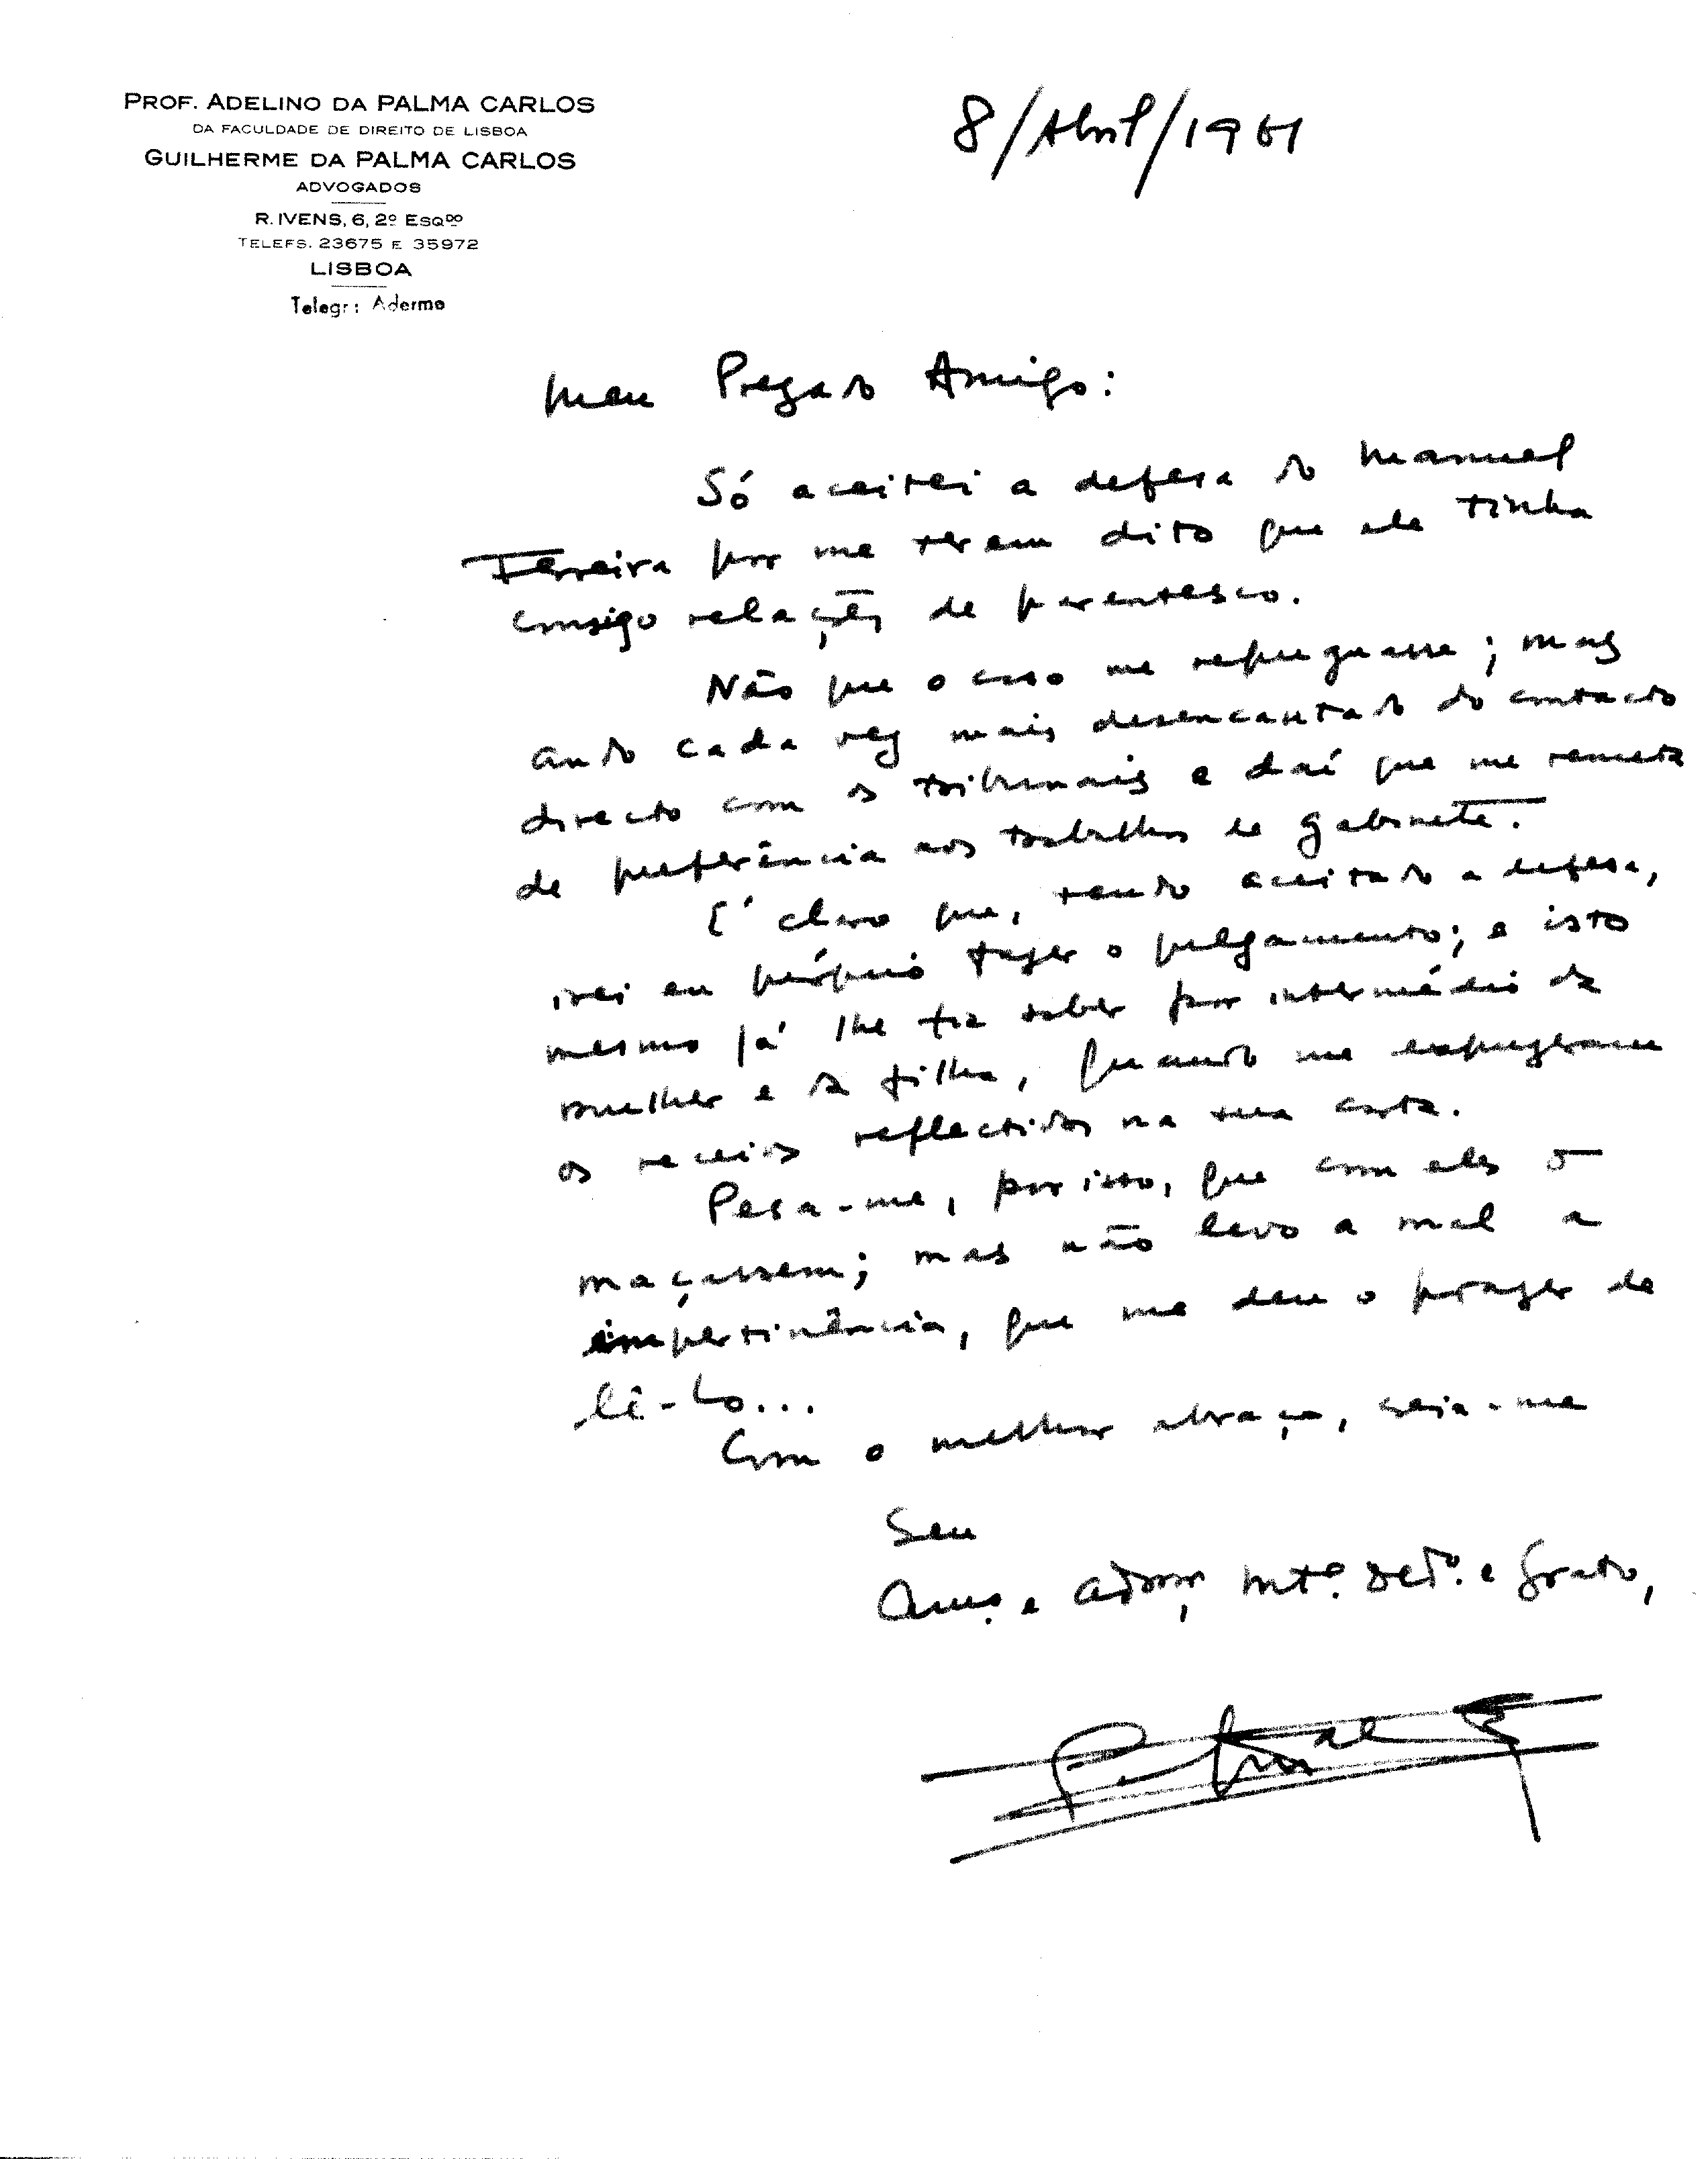 PROF. ADELINO DA PALMA CARLOS
DA FACULDADE DE DIREITO DE LISBOA
GUILHERME DA PALMA CARLOS
ADVOGADOS
R. IVENS, 6, 2º ESQDO
TELEFS. 23675 E 35972
LISBOA
Telegr: Adermo
8/Abril/1961
Meu Prezado Amigo:
Só aceitei a defesa do Manuel
Ferreira por me terem dito que ele tinha
consigo relações de parentesco.
Não que o caso me repugnasse; mas
ando cada vez mais desencantado do contacto
directo com os tribunais e daí que me remeta
de preferência aos trabalhos de gabinete.
É claro que, tendo aceitado a defesa,
irei eu próprio fazer o julgamento; e isto
mesmo já lhe fiz saber por intermédio da
mulher e da filha, quando me expuzeram
os receios reflectidos na sua carta.
Pesa-me, por isso, que com eles o
maçassem; mas não levo a mal a
impertinência, que me deu o prazer de
lê-lo...
Com o melhor abraço, creia-me
Seu
Amº. e admor, mtº. dedº. e grato,